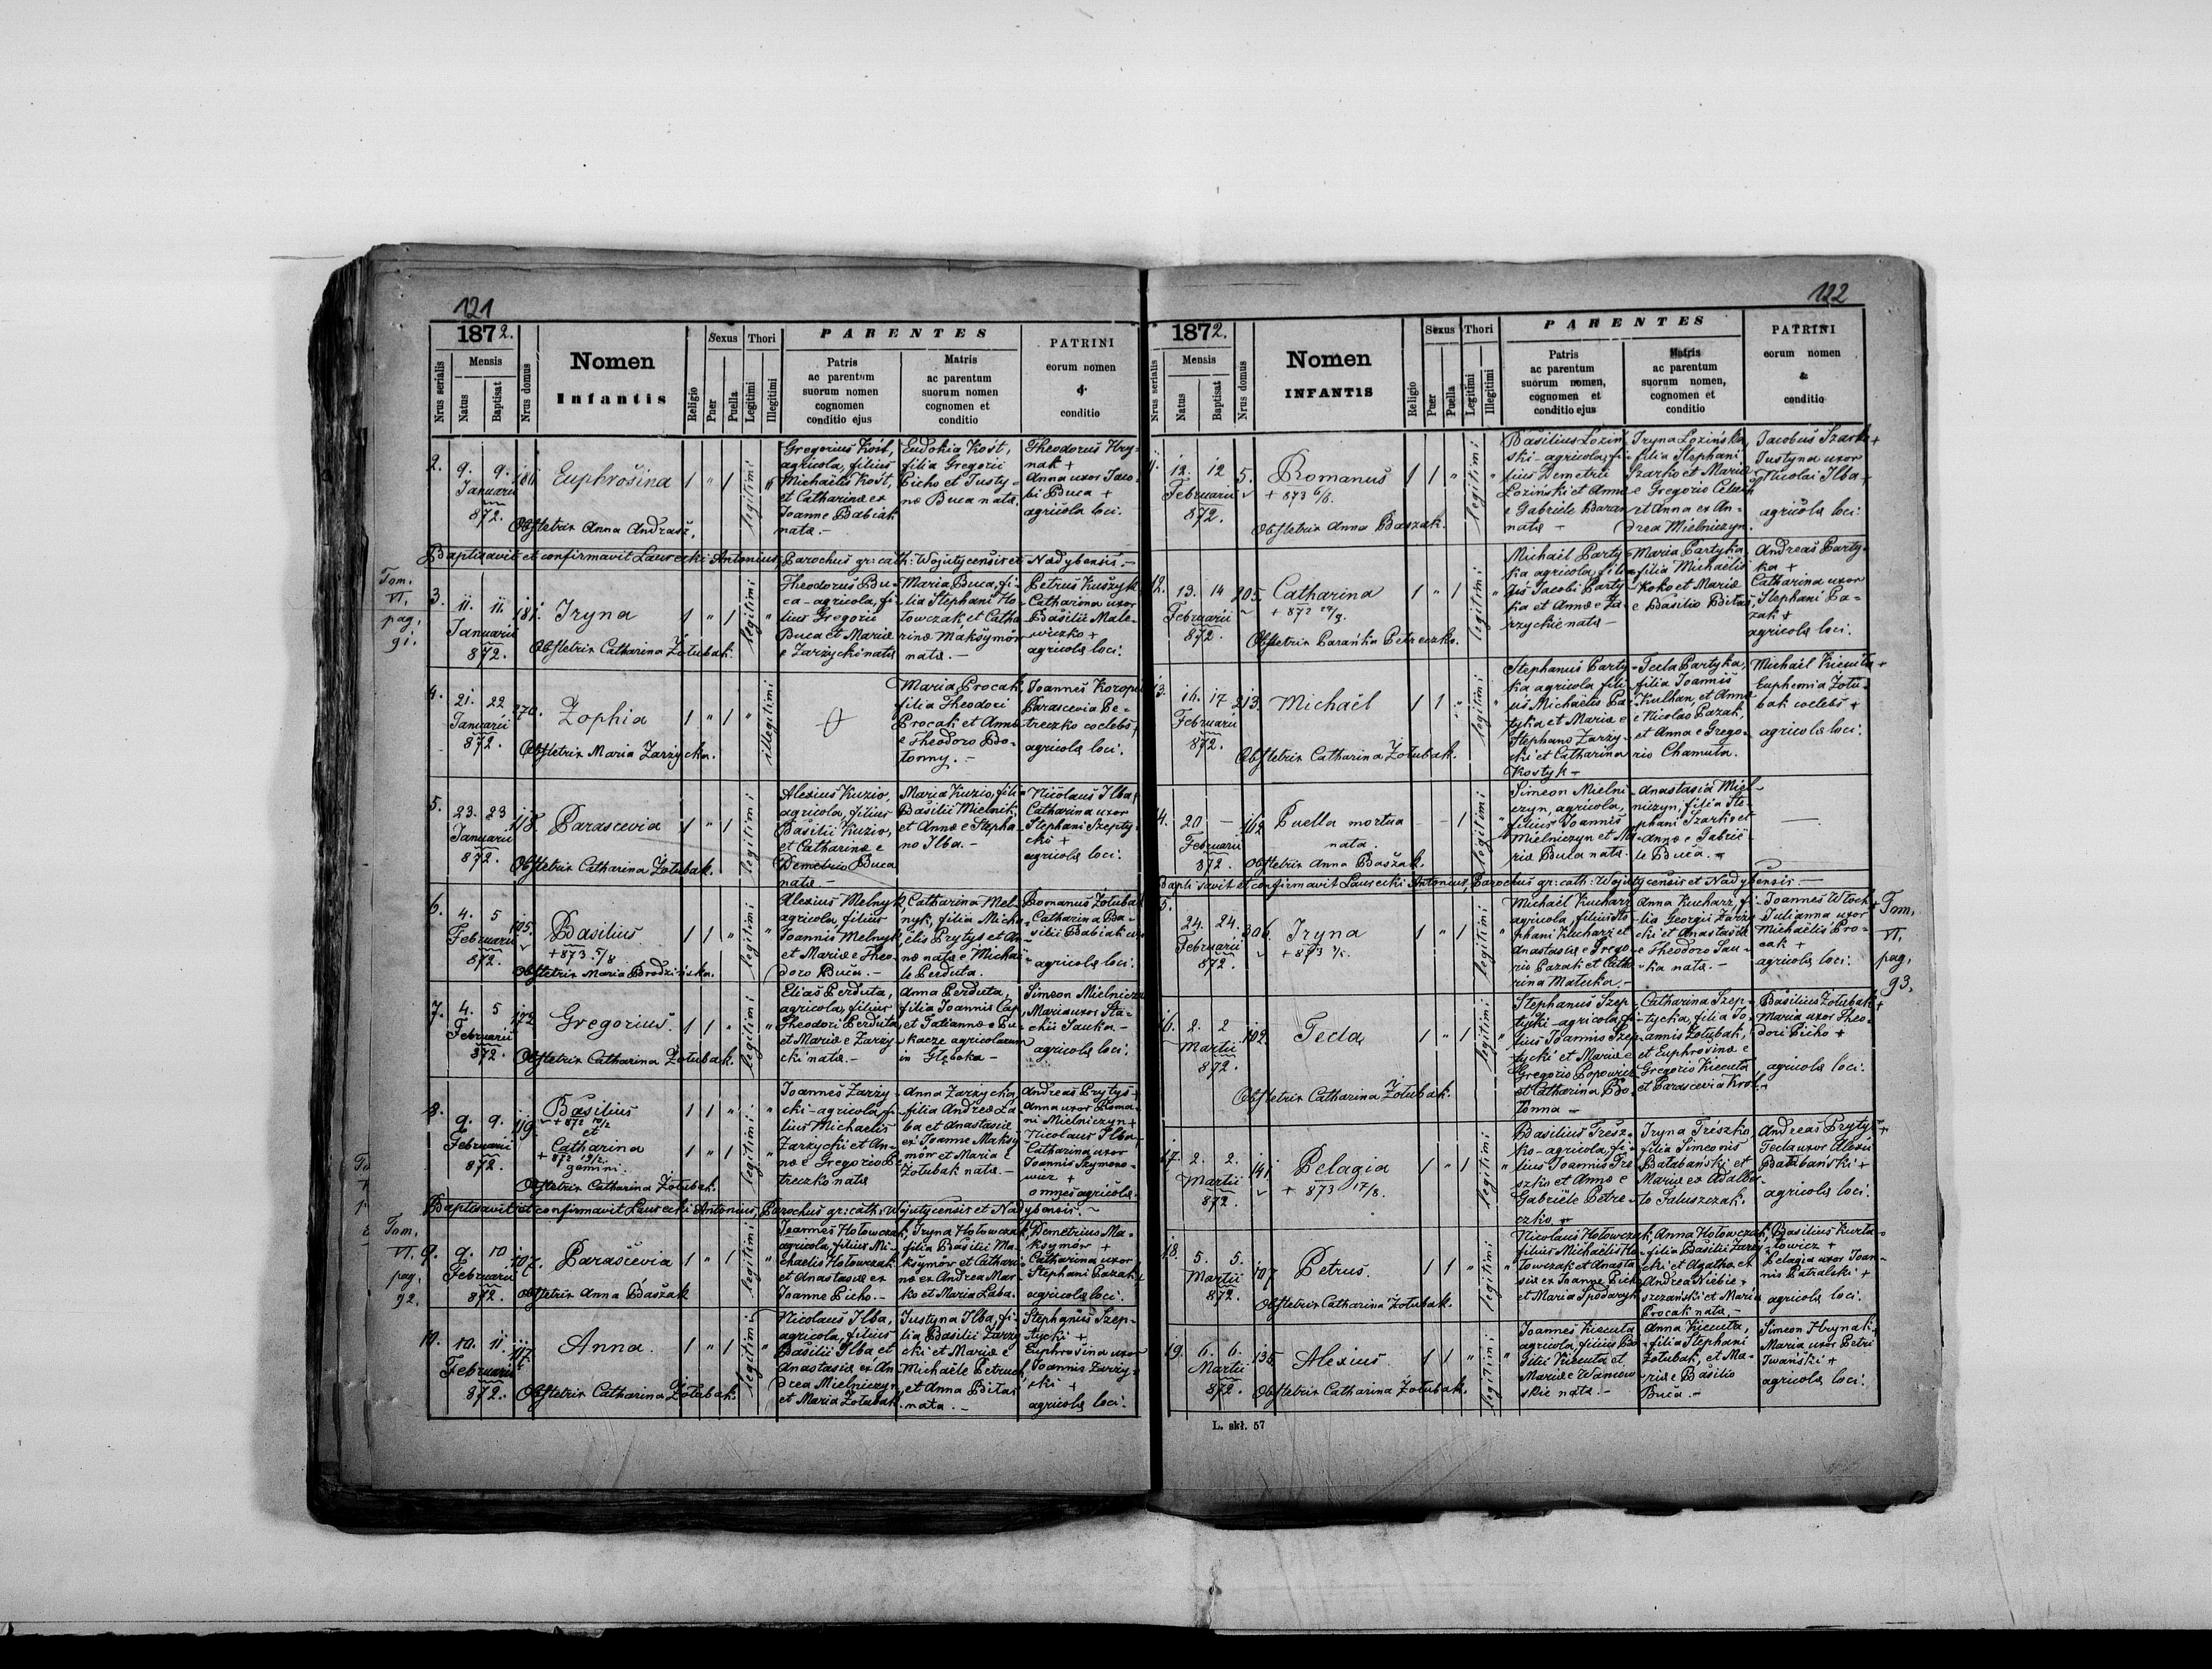 121
1872.
Nrus serialis
Mensis
Natus
Baptisat
Nrus domus
Nomen
Infantis
Religio
Sexus
Puer
Puella
Thori
Legitimi
Illegitimi
PARENTES
Patris
ac parentum
suorum nomen
cognomen
conditio ejus
Matris
ac parentum
suorum nomen
cognomen et
conditio
PATRINI
eorum nomen
&
conditio
2.
9. 9.
Januarii
872.
Euphrosina
1 " 1
legitimi
Obstetrix Anna Andrasz.
Gregorius Kost,
agricola, filius
Michaelis Kost,
et Catharinæ ex
Joanne Babiak
nata.-
Eudokia Kost,
filia Gregorii
Picho et Justy-
næ Buca nata.
Theodorus Hry-
nak +
Anna uxor Jaco-
bi Buca +
agricolæ loci.
Baptisavit et confirmavit Laurecki Antonius, Parochus gr: cath: Wojutycensis et Nadybensis.-
Tom.
VI.
pag.
91.
3.
11. 11.
Januarii
872.
181.
Iryna
1 " 1
legitimi
Obstetrix Catharina Żołubak.
Theodorus Bu-
ca - agricola, fi-
lius Gregorii
Buca et Mariæ
e Zarzycki nata
Maria Buca, fi-
lia Stephani Ho-
łowczak, et Catha-
rinæ Maksymów
nata.-
Petrus Kuszyk
Catharina uxor
Basilii Male-
wiczko +
agricolæ loci.
4.
21. 22
Januarii
872.
270.
Zophia
1 " 1 "
illegitimi
Obstetrix Maria Zarzycka.
Maria Procak,
filia Theodori
Procak et Annæ
e Theodoro Bo-
tonny.-
Joannes Koropa
Parascevia Pe-
treczko coelebs +
agricolæ loci.
5.
23. 23
Januarii
872.
118.
Parascevia
1 " 1
legitimi
Obstetrix Catharina Żołubak.
Alexius Kuzio,
agricola, filius
Basilii Kuzio,
et Catharinæ e
Demetrio Buca
nata.-
Maria Kuzio, fili-
Basilii Mielnik,
et Annæ e Stepha-
no Ilba.-
Nicolaus Ilba,
Catharina uxor
Stephani Szepty-
cki +
agricolæ loci.
6.
4. 5
Februarii
872.
105.
Basilius
+ 873 5/8
1 1 " "
legitimi
Obstetrix Maria Brodzińska.
Alexius Melnyk
agricola, filius
Joannis Melnyk
et Mariæ e Theo-
doro Buca.-
Catharina Mel-
nyk, filia Micha-
ëlis Prytys et An-
næ nata e Michaë-
le Perduta.
Romanus Żołubak
Catharina Ba-
silii Babiak uxor
agricolæ loci.
7.
4. 5
Februarii
872.
172
Gregorius.
1 1 " "
legitimi
Obstetrix Catharina Żołubak.
Elias Perduta,
agricola, filius
Theodori Perduta,
et Mariæ e Zarzy-
cki nata.-
Anna Perduta,
filia Joannis Cap,
et Tatiannæ e Pu-
kacze agricolarum
in Głęboka -
Simeon Mielniczyn
Maria uxor Sta-
chii Sauka -
agricolæ loci.
8.
9. 9.
Februarii
872.
119.
Basilius
+ 872 10/2
et
Catharina
+ 872 19/2
gemini.
1 1 " "
1 " 1 "
legitimi
Obstetrix Catharina Żołubak.
Joannes Zarzy-
cki - agricola, fi-
lius Michaelis
Zarzycki et An-
næ e Gregorio Pe-
treczko nata
Anna Zarzycka,
filia Andreæ Ła-
ba et Anastasiæ
ex Joanne Maksy-
mów et Maria e
Żołubak nata.-
Andreas Prytys +
Anna uxor Roma-
ni Mielniczyn +
Nicolaus Ilba,
Catharina uxor
Joannis Szymono-
wicz +
omnes agricolæ.
Baptisavit et confirmavit Laurecki Antonius, Parochus gr: cath: Wojutycensis et Nadybensis.-
Tom.
VI.
pag.
92.
9.
9. 10
Februarii
872.
107.
Parascevia
1 " 1 "
legitimi
Obstetrix Anna Baszak
Joannes Hołowczak,
agricola, filius Mi-
chaelis Hołowczak
et Anastasiæ ex
Joanne Picho.-
Iryna Hołowczak,
filia Basilii Ma-
ksymów et Cathari-
næ ex Andrea Mar-
ko et Maria Łaba.
Demetrius Ma-
ksymów +
Catharina uxor
Stephani Pazak +
agricolæ loci.
10.
10. 11.
Februarii
872.
117.
Anna.
1 " 1 "
legitimi
Obstetrix Catharina Żołubak.
Nicolaus Ilba,
agricola, filius
Basilii Ilba et
Anastasiæ ex An-
drea Mielniczyn
et Maria Żołubak
Justyna Ilba, fi-
lia Basilii Zarzy-
cki et Mariæ e
Michaële Petruch,
et Anna Bitas
nata.-
Stephanus Szep-
tycki +
Euphrosina uxor
Joannis Zarzy-
cki +
agricolæ loci.
122
1872.
Nrus serialis
Mensis
Natus
Baptisat
Nrus domus
Nomen
INFANTIS
Religio
Sexus
Puer
Puella
Thori
Legitimi
Illegitimi
PARENTES
Patris
ac parentum
suorum nomen,
cognomen
conditio ejus
Matris
ac parentum
suorum nomen,
cognomen et
conditio
PATRINI
eorum nomen
&
conditio
11.
12. 12
Februarii
872.
5.
Romanus
+ 873 6/8.
1 1 " "
legitimi
Obstetrix Anna Baszak.
Basilius Łoziń-
ski - agricola, fi-
lius Demetrii
Łoziński et Annæ
e Gabriele Baran
nata -
Iryna Łozińska,
filia Stephani
Szarko et Mariæ
e Gregorio Celuch
et Anna ex An-
drea Mielniczyn.
Jacobus Szarko +
Justyna uxor
Nicolai Ilba +
agricolæ loci.
12.
13. 14
Februarii
872.
205.
Catharina
+ 872 29/3.
1 " 1 "
legitimi
Obstetrix Parańka Petreczko.
Michaël Party-
ka agricola, fili-
us Jacobi Party-
ka et Annæ e Za-
rzyckie nata -
Maria Partyka,
filia Michaëlis
Koko et Mariæ
e Basilio Bitas,
Andreas Party-
ka +
Catharina uxor
Stephani Pa-
zak +
agricolæ loci.
13.
16. 17
Februarii
872.
213.
Michaël
1 1 " "
legitimi
Obstetrix Catharina Żołubak.
Stephanus Party-
ka agricola fili-
us Michaëlis Par-
tyka et Mariæ e
Stephano Zarzy-
cki et Catharina
Kostyk -
Tecla Partyka,
filia Joannis
Kulhan, et Annæ
e Nicolao Pazak,
et Anna e Grego-
rio Chamuta.
Michaël Kiecuła +
Euphemia Żołu-
bak coelebs +
agricolæ loci.
14.
20 -
Februarii
872.
162
Puella mortua
nata.
- - 1 "
legitimi
Obstetrix Anna Baszak.
Simeon Mielni-
czyn, agricola,
filius Joannis
Mielniczyn et Ma-
riæ Buca nata.
Anastasia Miel-
niczyn, filia Ste-
phani Szarko et
Annæ e Gabrië-
le Buca.-
Baptisavit et confirmavit Laurecki Antonius, Parochus gr: cath: Wojutycensis et Nadybensis.-
15.
24. 24.
Februarii
872.
306.
Iryna
1 " 1 "
legitimi
Michaël Kucharz
agricola, filius Ste-
phani Kucharz et
Anastasiæ e Grego-
rio Pazak et Catha-
rina Matuka.-
Anna Kucharz, fi-
lia Georgii Zarzy-
cki et Anastasiæ
e Theodoro Sau-
ka nata.-
Joannes Włoch +
Julianna uxor
Michaëlis Pro-
cak +
agricolæ loci.
Tom.
VI.
pag.
93.
16.
2. 2
Martii
872.
102.
Tecla
1 " 1 "
legitimi
Obstetrix Catharina Żołubak.
Stephanus Szep-
tycki - agricola, fi-
lius Joannis Szep-
tycki et Mariæ e
Gregorio Popowicz
et Catharina Bo-
tonna -
Catharina Szep-
tycka, filia Jo-
annis Żołubak,
et Euphrosinæ e
Gregorio Kiecuta
et Parascevia Krol.-
Basilius Żołubak +
Maria uxor Theo-
dori Picho +
agricolæ loci.
17.
2. 2.
Martii
872.
141.
Pelagia
+ 873 17/8.
1 " 1 "
legitimi
Basilius Tresz-
ko - agricola, fi-
lius Joannis Tre-
szko et Annæ e
Gabriële Petre-
czko.-
Iryna Treszko,
filia Simeonis
Bałabański et
Mariæ ex Adalber-
to Galuszczak.
Andreas Prytys +
Tecla uxor Alexii
Bałabański +
agricolæ loci.
18.
5. 5.
Martii
872.
107
Petrus.
1 1 " "
legitimi
Obstetrix Catharina Żołubak.
Nicolaus Hołowczak,
filius Michaëlis Ho-
łowczak et Anasta-
siæ ex Joanne Picho
et Maria Spodaryk
Anna Hołowczak,
filia Basilii Zarzy-
cki et Agatha ex
Andrea Niebie-
szczański et Maria
Procak nata.-
Basilius Kurła-
towicz +
Pelagia uxor Joan-
nis Patralski +
agricolæ loci.
19.
6. 6.
Martii
872.
135.
Alexius
1 1 " "
legitimi
Obstetrix Catharina Żołubak.
Joannes Kiecuta
agricola, filius Ba-
silii Kiecuta et
Mariæ e Waniow-
skie nata.-
Anna Kiecuta,
filia Stephani
Żołubak, et Ma-
riæ e Basilio
Buca.-
Simeon Hrynak,
Maria uxor Petri
Iwański +
agricolæ loci.
L. skł. 57